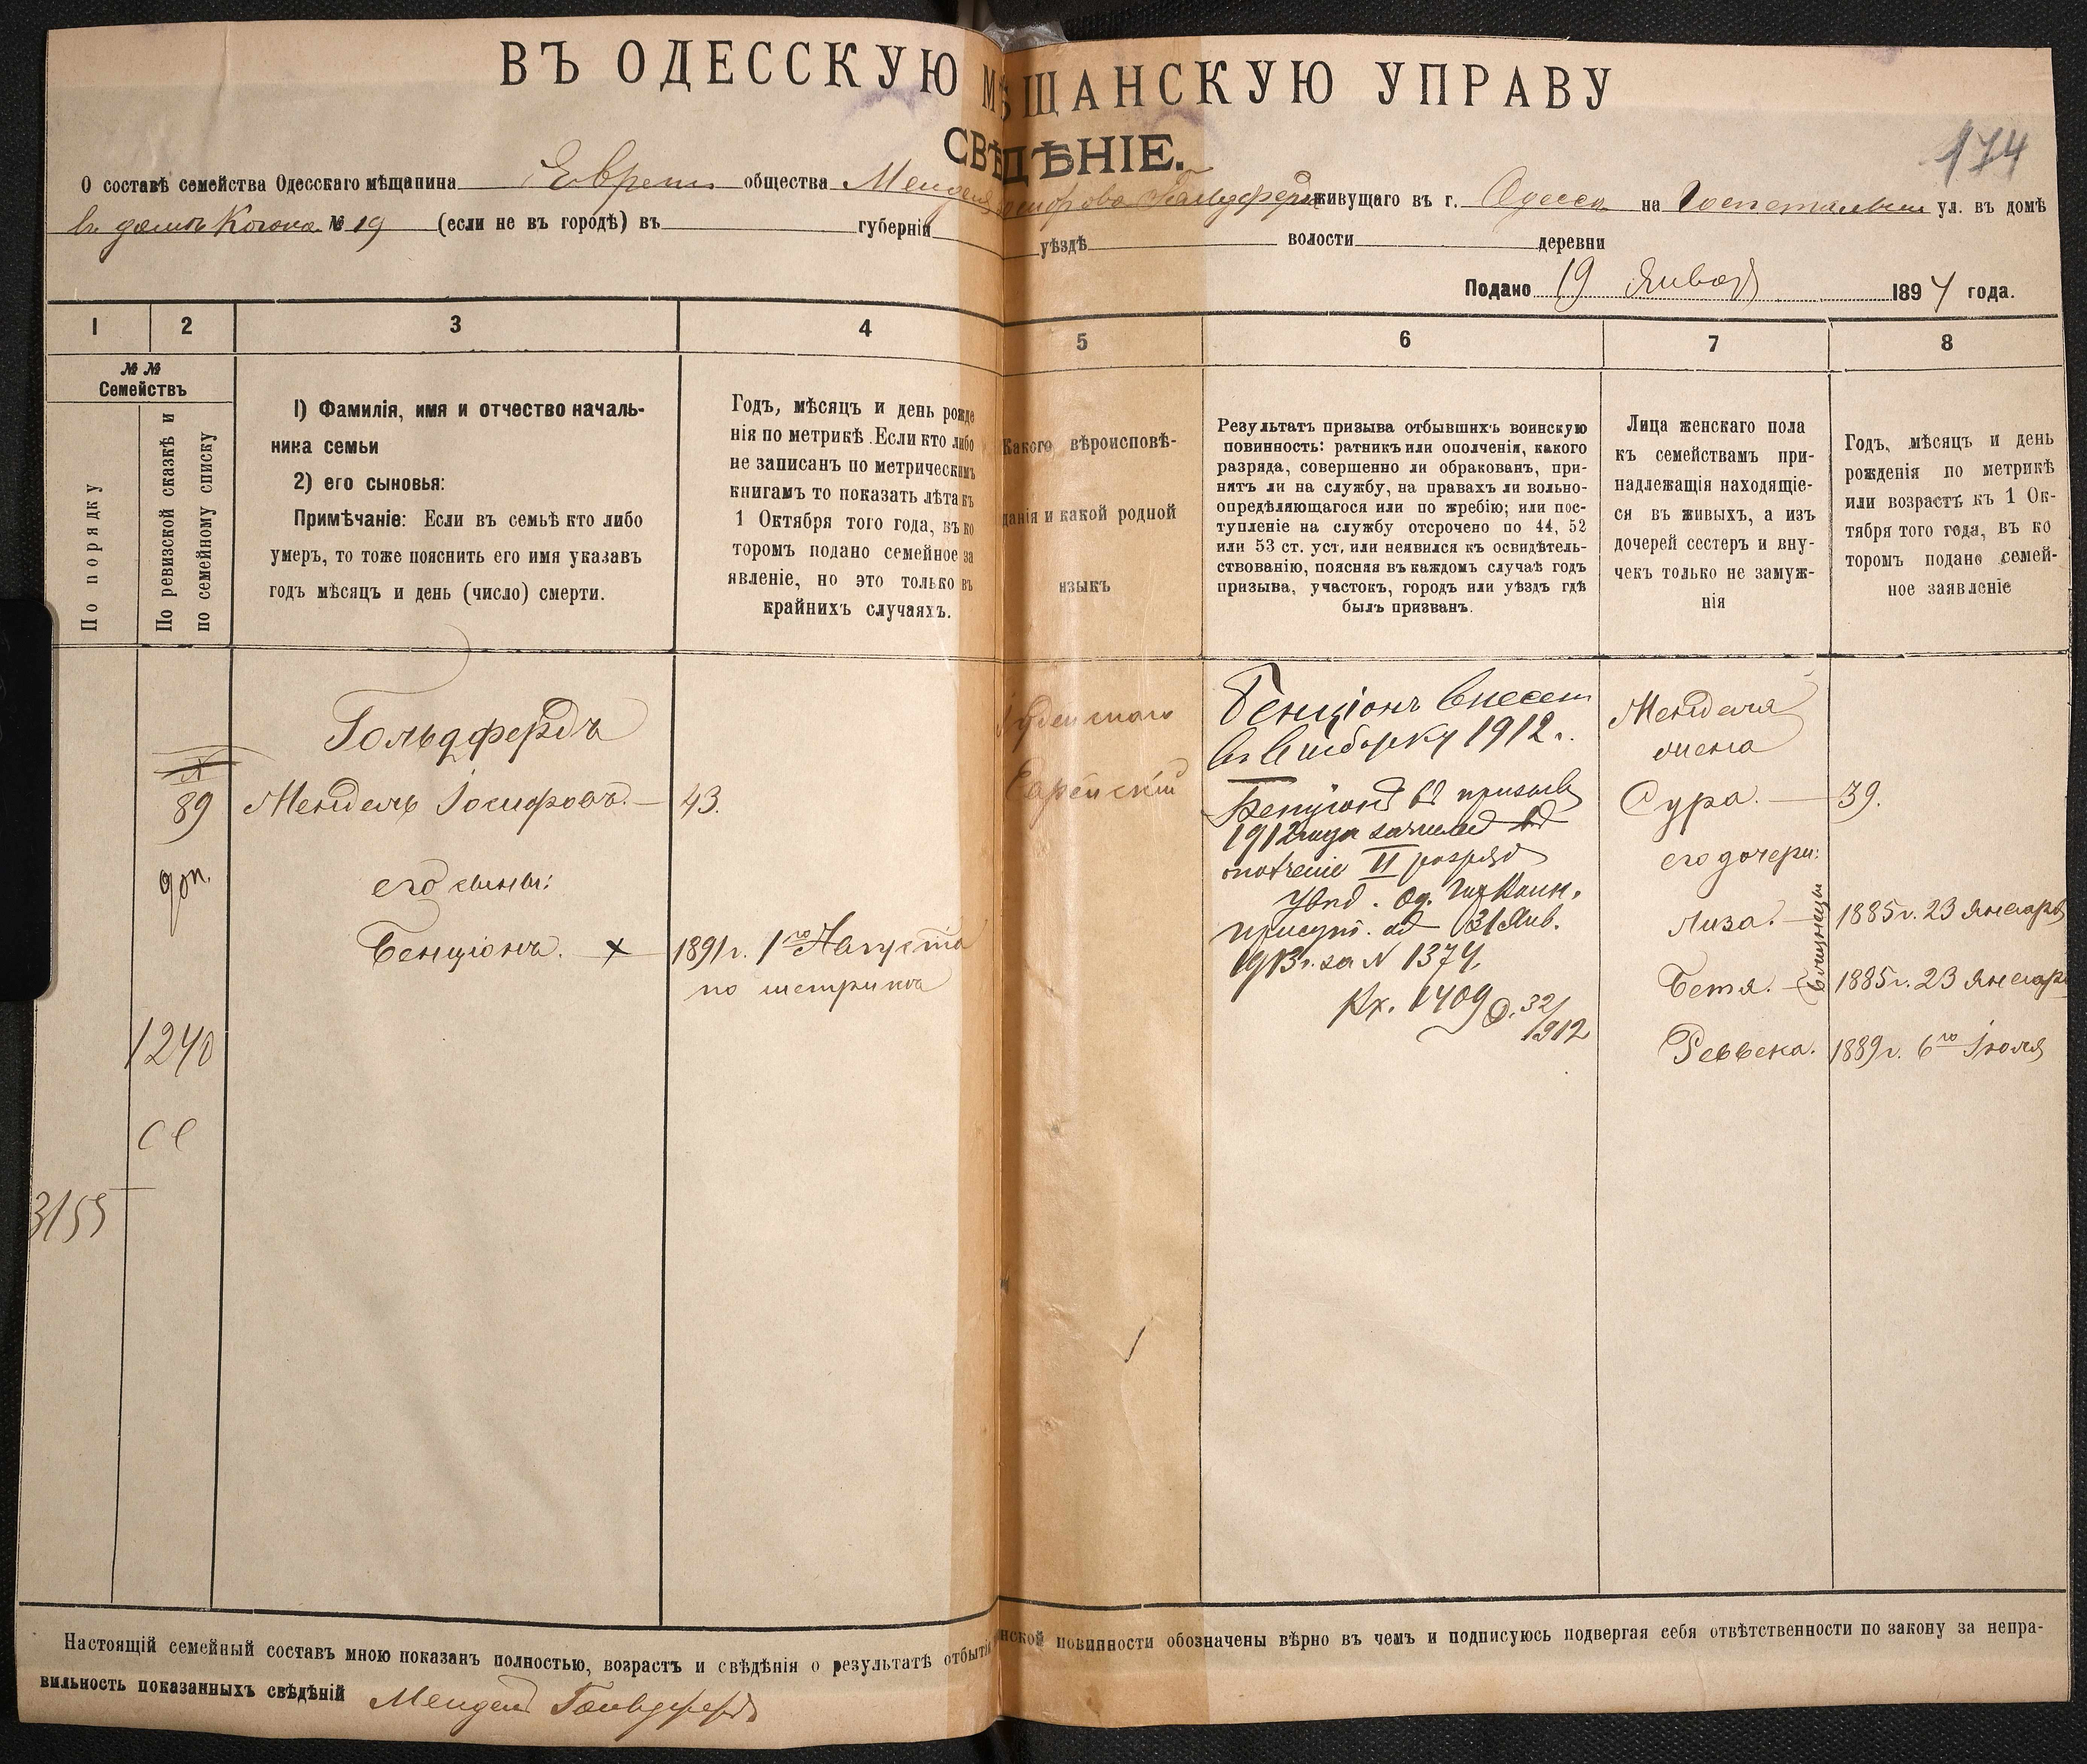 ВЪ ОДЕССКУЮ МѢЩАНСКУЮ УПРАВУ
СВѢДѢНІЕ.
174
О составѣ семейства Одесскаго мѣщанина Евреи общества Менделя Іосифова Гольдферда живущаго въ г. Одесса на Госпетальной ул. въ домѣ
въ домѣ Когона № 19 (если не въ городѣ) въ губерніи уѣздѣ волости деревни
Подано 19 Января 1894 года.
1 2 3 4 5 6 7 8
№ №
Семействъ
По порядку
По ревизской сказкѣ и
по семейному списку
1) Фамилія, имя и отчество началь-
ника семьи
2) его сыновья:
Примѣчаніе: Если въ семьѣ кто либо
умеръ, то тоже пояснить его имя указавъ
годъ мѣсяцъ и день (число) смерти.
Годъ, мѣсяцъ и день рожде
нія по метрикѣ. Если кто либо
не записанъ по метрическимъ
книгамъ то показать лѣта къ
1 Октября того года, въ ко
торомъ подано семейное за
явленіе, но это только въ
крайнихъ случаяхъ.
Какого вѣроисповѣ-
данія и какой родной
языкъ
Результатъ призыва отбывшихъ воинскую
повинность: ратникъ или ополченія, какого
разряда, совершенно ли обракованъ, при-
нятъ ли на службу, на правахъ ли вольно-
опредѣляющагося или по жребію; или пос-
тупленіе на службу отсрочено по 44, 52
или 53 ст. уст. или неявился къ освидѣтель-
ствованію, поясняя въ каждомъ случаѣ годъ
призыва, участокъ, городъ или уѣздъ гдѣ
былъ призванъ.
Лица женскаго пола
къ семействамъ при-
надлежащія находящіе-
ся въ живыхъ, а изъ
дочерей сестеръ и вну-
чекъ только не замуж-
нія
Годъ, мѣсяцъ и день
рожденія по метрикѣ
или возрастъ къ 1 Ок-
тября того года, въ ко
торомъ подано семей-
ное заявленіе
89
доп.
1240
3155
Гольдфердъ
Мендель Іосифовъ. — 43.
его сыны:
Бенціонъ. — х — 1891 г. 1го Августа
по метрики
Іудейскаго
Еврейскій
Бенціонъ внесенъ
въ выборку 1912 г.
Бенціонъ въ призывъ
1912 года зачисленъ въ
ополченіе II разряда
Увѣд. Од. Гор. Воин.
Присут. отъ 31 Янв.
1913 г. за № 1374.
Вх. 1409 О. 32/1912
Менделя
жена
Сура. — 39.
его дочери:
Лиза. — 1885 г. 23 Января
Бетя. — 1885 г. 23 Января
близнецы
Реввека. 1889 г. 6го Іюля
Настоящій семейный составъ мною показанъ полностью, возрастъ и свѣдѣнія о результатѣ отбытія воинской повинности обозначены вѣрно въ чемъ и подписуюсь подвергая себя отвѣтственности по закону за непра-
вильность показанныхъ свѣдѣній Мендель Гольдфердъ